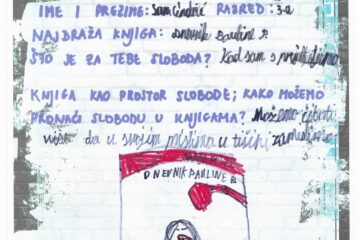 IME I PREZIME: Sam Cindrić RAZRED: 3.a
NAJDRAŽA KNJIGA: Dnevnik Pauline P.
ŠTO JE ZA TEBE SLOBODA? Kad sam s
KNJIGA KAO PROSTOR SLOBODE; KAKO MOŽEMO
PRONAĆI SLOBODU U KNJIGAMA? Možemo čitati
više da u svojim mislima u tišini
DNEVNIK PAULINE P.